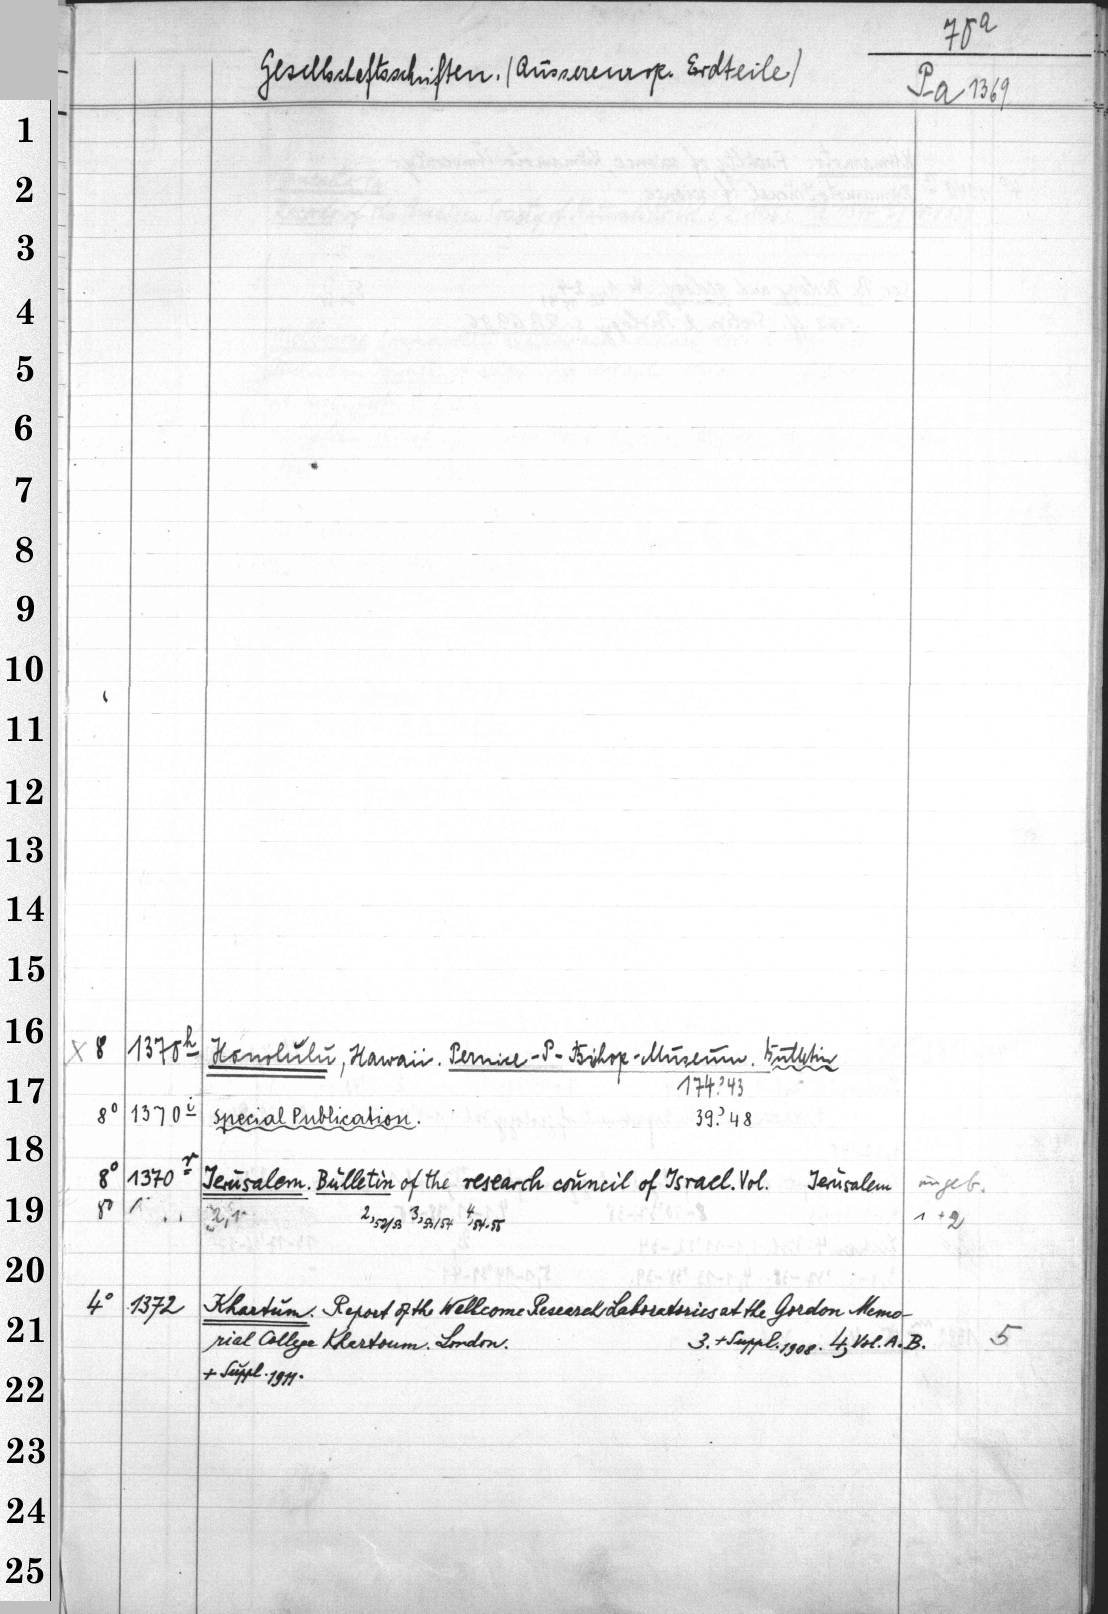 70a
Gesellschaftsschriften. (Aussereurop. Erdteile)
Pa 1369
1
2
3
4
5
6
7
8
9
10
11
12
13
14
15
16
X 8 1370h Honolulu, Hawaii. Pernice-P-Bishop-Museum. Bulletin
17
174.? 43
8° 1370i Special Publication. 39.? 48
18
8° 1370r Jerusalem. Bulletin of the research council of Israel. Vol. Jerusalem ungeb.
19
8° 2,1. 2,52/53 3,53/54 4,54-55 1+2
20
4° 1372 Khartum. Report of the Wellcome Research Laboratories at the Gordon Memo-
21
rial College Khartoum. London. 3.+Suppl. 1908. 4, Vol. A.B. 5
+ Suppl. 1911.
22
23
24
25